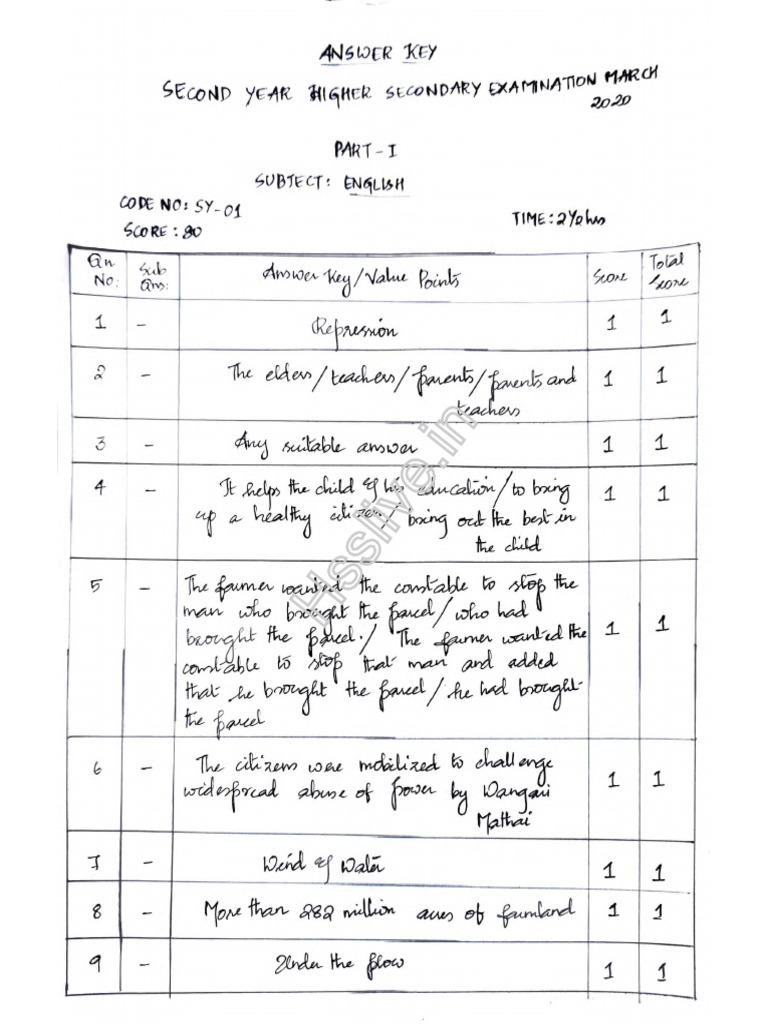 ANSWER KEY
SECOND YEAR HIGHER SECONDARY EXAMINATION MARCH
2020
PART-I
SUBJECT: ENGLISH
CODE NO: SY-01
SCORE: 80
TIME: 2½ hrs
Qn No: Sub Qns: Answer Key/Value Points Score Total Score
1 - Repression 1 1
2 - The elders/teachers/parents/parents and 1 1
teachers
3 - Any suitable answer 1 1
4 - It helps the child & his education/to bring 1 1
up a healthy citizen/ bring out the best in
the child
5 - The farmer wanted the constable to stop the
man who brought the parcel/who had
brought the parcel./ The farmer wanted the 1 1
constable to stop that man and added
that he brought the parcel/he had brought
the parcel
6 - The citizens were mobilized to challenge 1 1
widespread abuse of power by Wangari
Mathai
7 - Wind & Water 1 1
8 - More than 282 million acres of farmland 1 1
9 - Under the plow 1 1
Hsslive.in